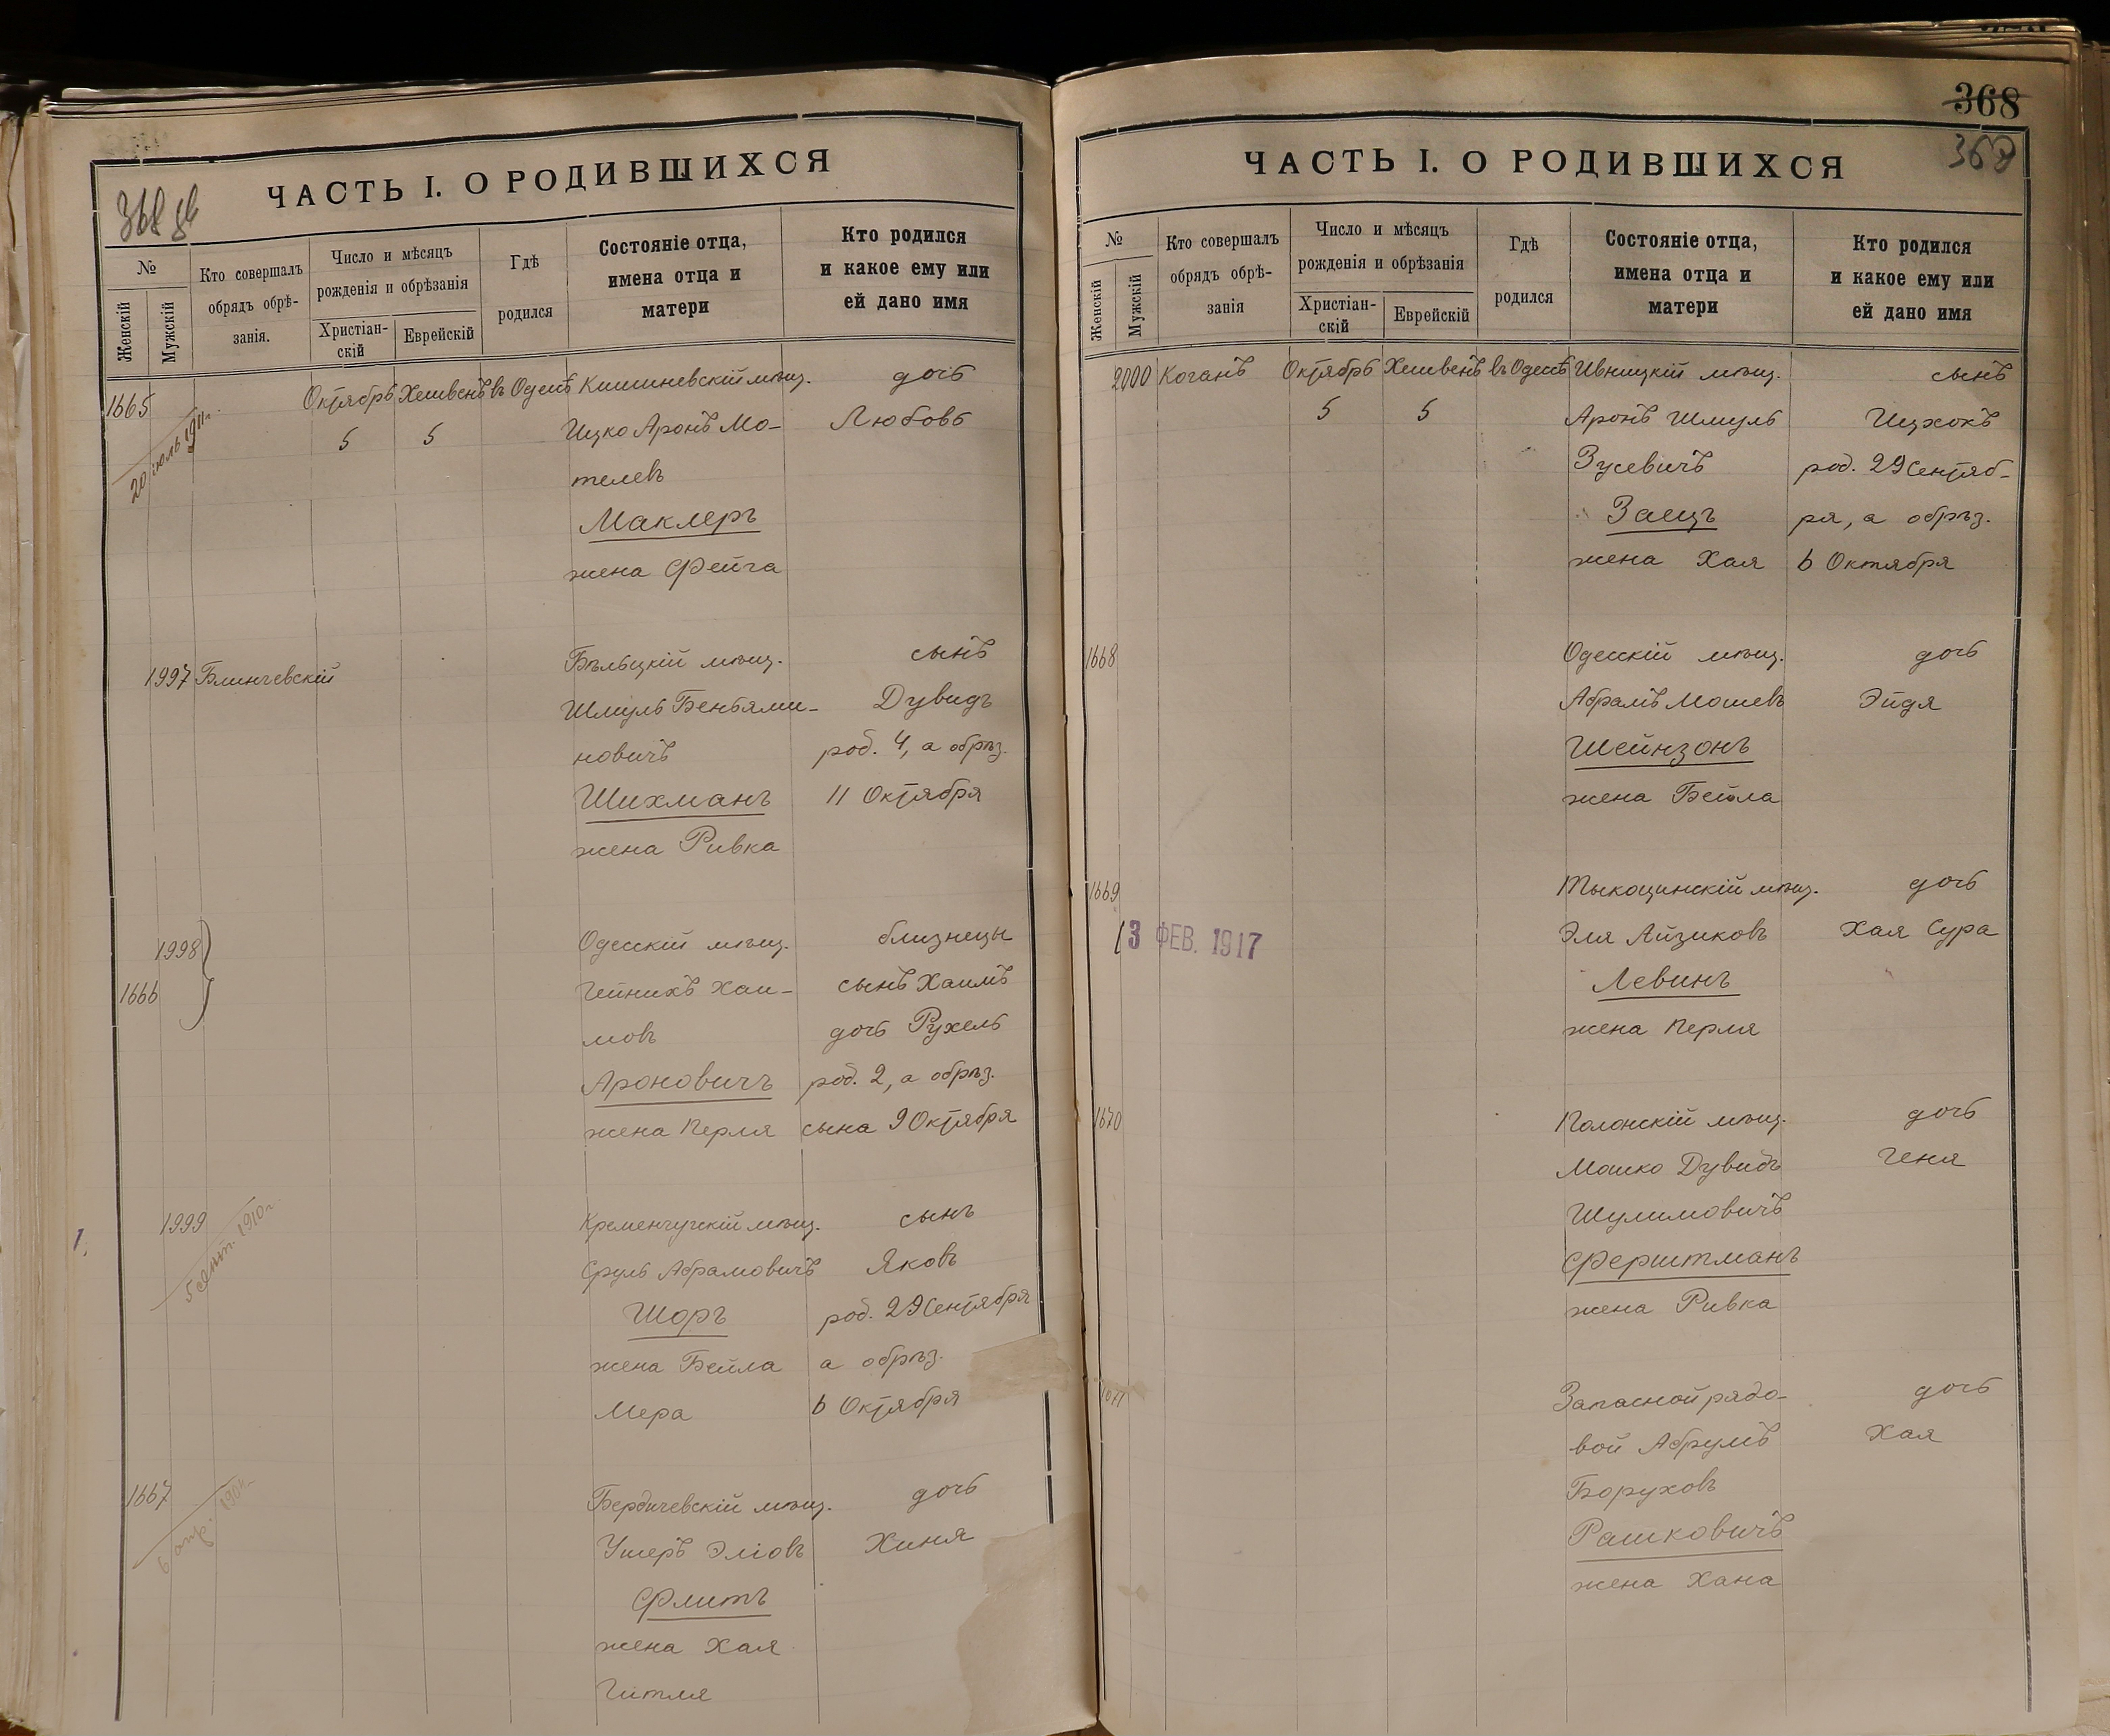 368 об
ЧАСТЬ I. О РОДИВШИХСЯ
№
Женскій
Мужскій
Кто совершалъ
обрядъ обрѣ-
занія.
Число и мѣсяцъ
рожденія и обрѣзанія
Христіан-
скій
Еврейскій
Гдѣ
родился
Состояніе отца,
имена отца и
матери
Кто родился
и какое ему или
ей дано имя
1665 Октябрь Хешвенъ въ Одессѣ Кишиневскій мѣщ. дочь
20 іюль 1911 г.
5 5 Ицко Аронъ Мо- Любовь
телевъ
Маклеръ
жена Фейга
1997 Блинчевскій Бѣльцкій мѣщ. сынъ
Шмуль Беньями- Дувидъ
новичъ род. 4, а обрѣз.
Шихманъ 11 Октября
жена Ривка
1998 Одесскій мѣщ. близнецы
1666 Гейнихъ Хаи- сынъ Хаимъ
мовъ дочь Рухель
Ароновичъ род. 2, а обрѣз.
жена Перля сына 9 Октября
1.
1999 Кременчугскій мѣщ. сынъ
5 сент. 1910 г.
Сруль Абрамовичъ Яковъ
Шоръ род. 29 Сентября
жена Бейла а обрѣз.
Мера 6 Октября
1667 Бердичевскій мѣщ. дочь
6 апр.
Ушеръ Эліовъ Хиня
Флитъ
жена Хая
Гитля
368
369
ЧАСТЬ I. О РОДИВШИХСЯ
№
Женскій
Мужскій
Кто совершалъ
обрядъ обрѣ-
занія
Число и мѣсяцъ
рожденія и обрѣзанія
Христіан-
скій
Еврейскій
Гдѣ
родился
Состояніе отца,
имена отца и
матери
Кто родился
и какое ему или
ей дано имя
2000 Коганъ Октябрь Хешвенъ въ Одессѣ Ивницкій мѣщ. сынъ
5 5 Аронъ Шмуль Ицхокъ
Зусевичъ род. 29 Сентяб-
Заецъ ря, а обрѣз.
жена Хая 6 Октября
1668 Одесскій мѣщ. дочь
Абрамъ Мошевъ Эйдя
Шейнзонъ
жена Бейла
1669 Тыкоцинскій мѣщ. дочь
13 ФЕВ. 1917 Эля Айзиковъ Хая Сура
Левинъ
жена Перля
1670 Полонскій мѣщ. дочь
Мошко Дувидъ Геня
Шулимовичъ
Ферштманъ
жена Ривка
1671 Запасной рядо- дочь
вой Абрумъ Хая
Боруховъ
Рашковичъ
жена Хана